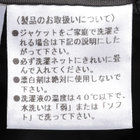 《製品のお取扱いについて》
●ジャケットをご家庭で洗濯さ
れる場合は下記の説明にした
がって下さい。
●必ず洗濯ネットにきれいに畳
んで入れてください。
●漂白剤は絶対に使用しない
で下さい。
●洗濯液の温度は40℃以下で、
水洗いは「弱」または「ソフ
ト」で洗って下さい。